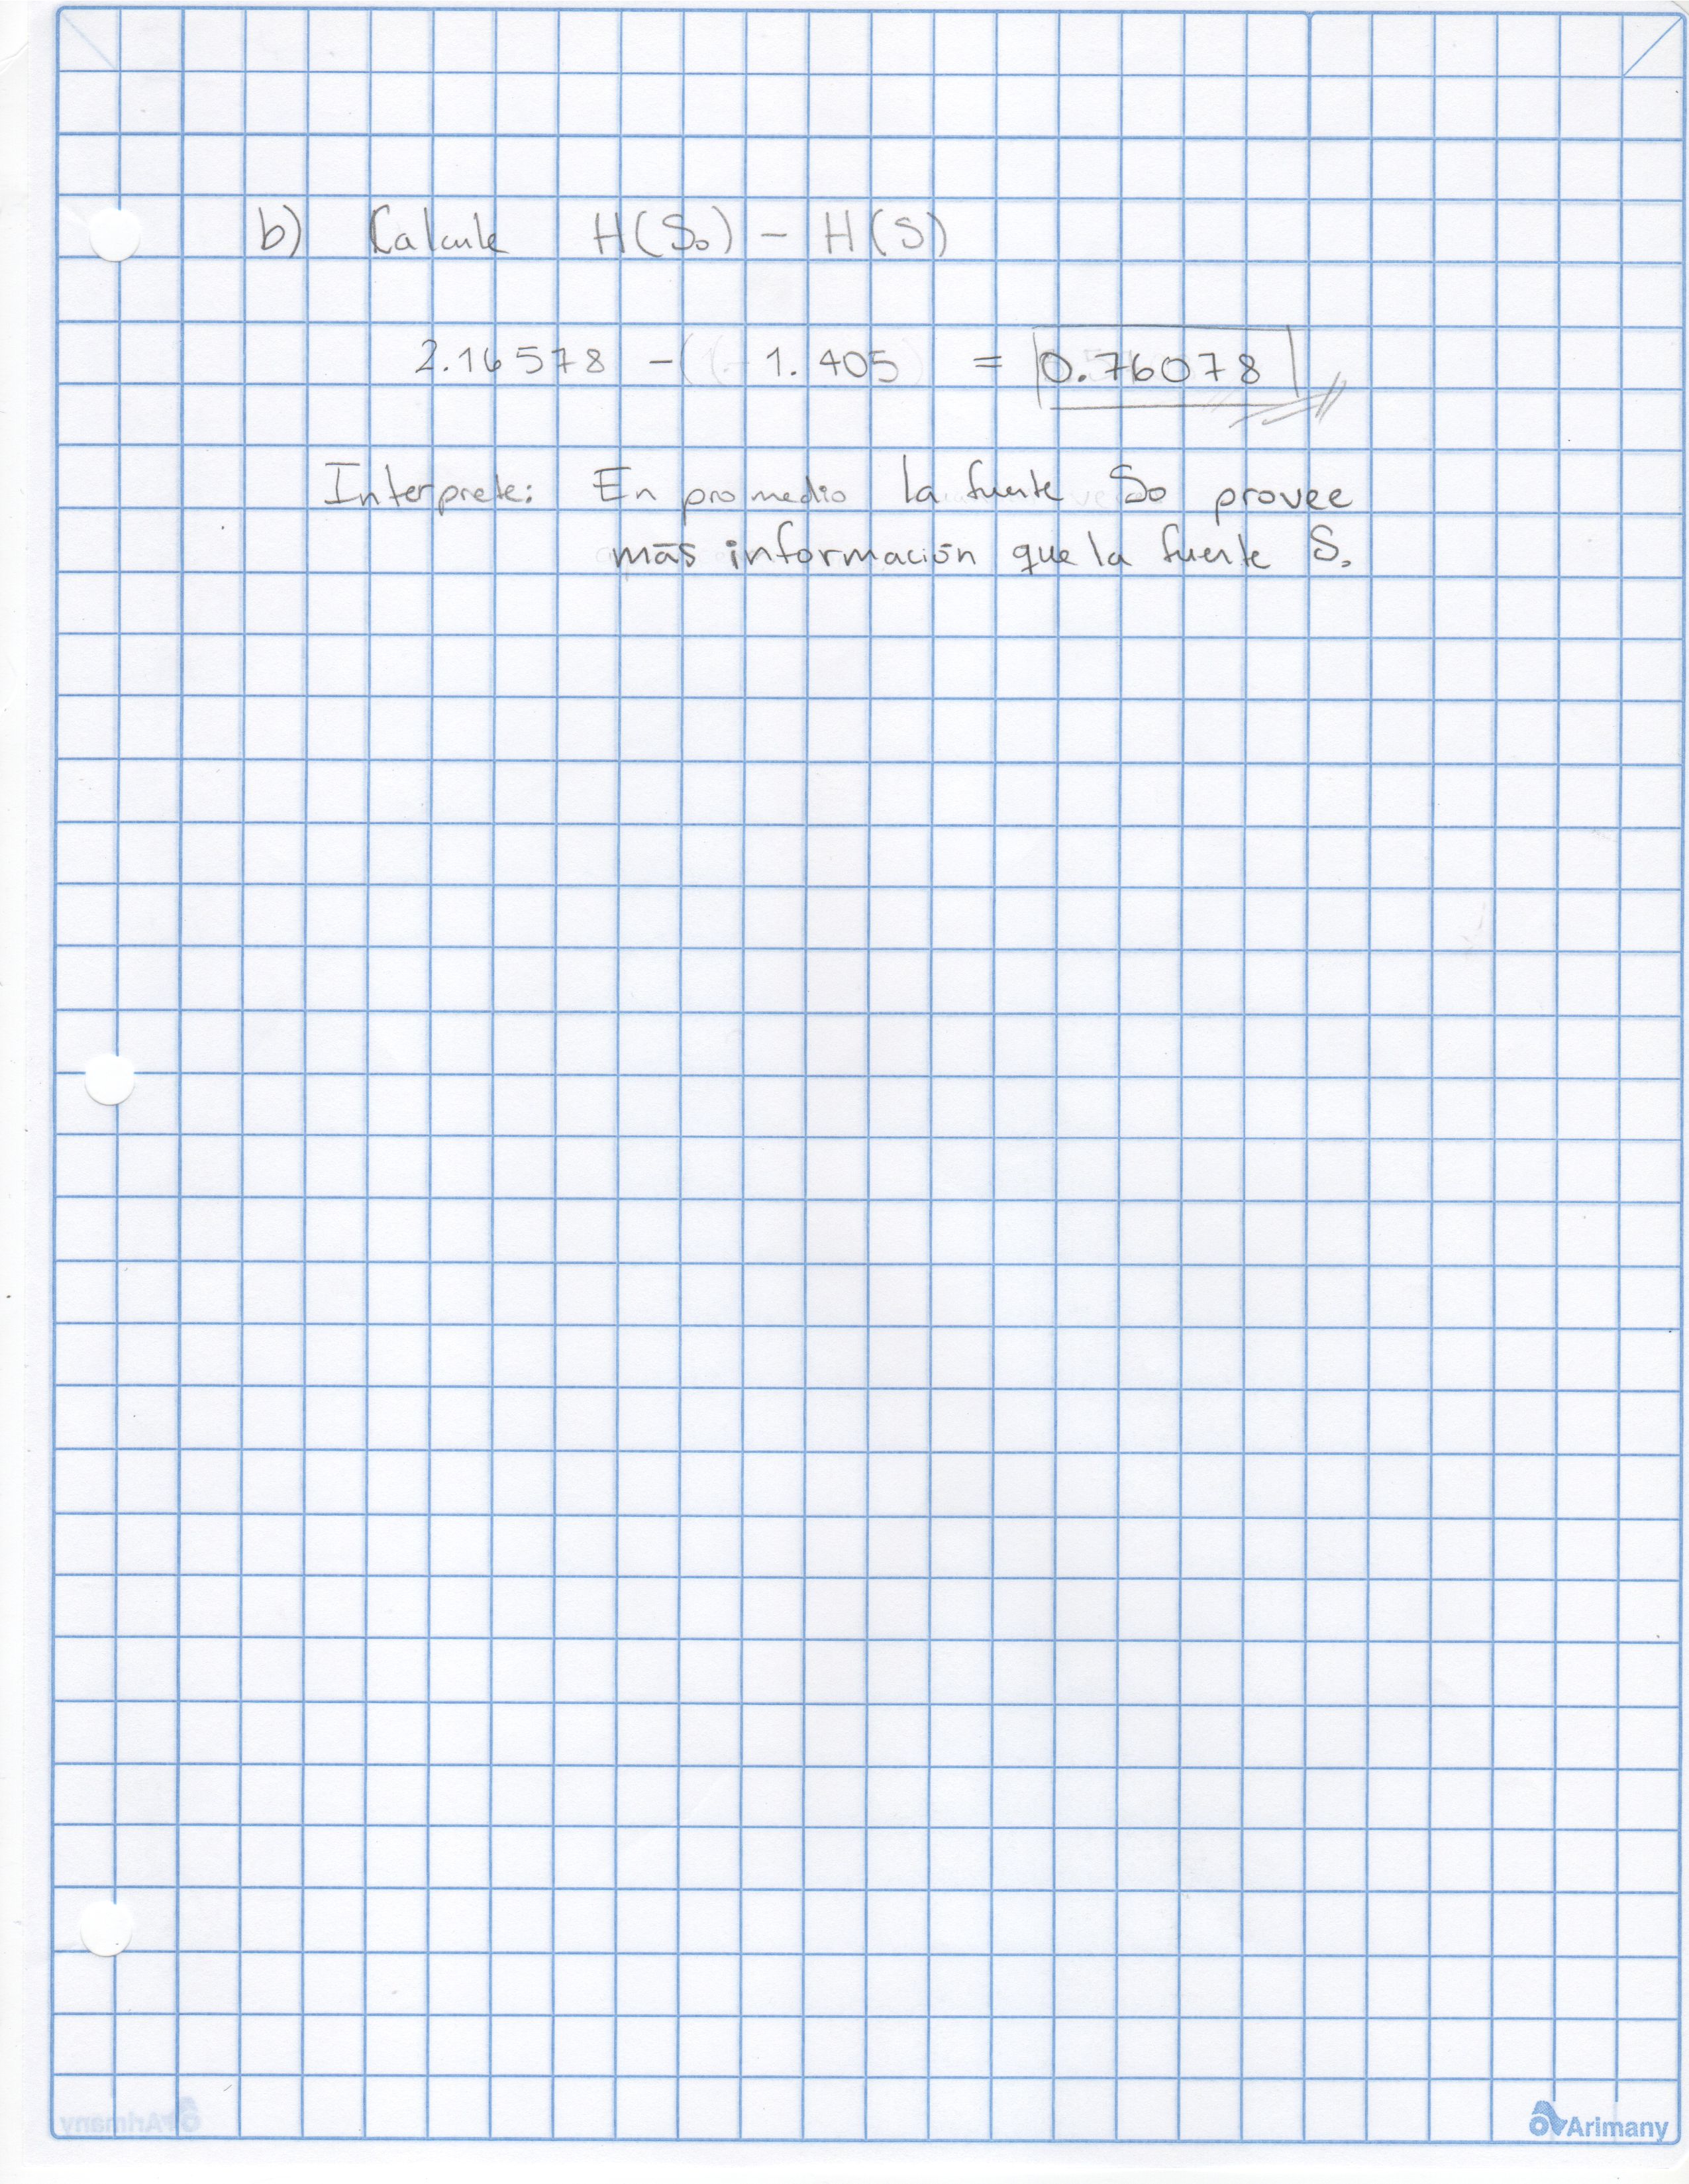 b) Calcule H(So) - H(S)
2.16578 - 1.405 = 0.76078
Interprete: En promedio la fuente So provee
más información que la fuente S.
Arimany